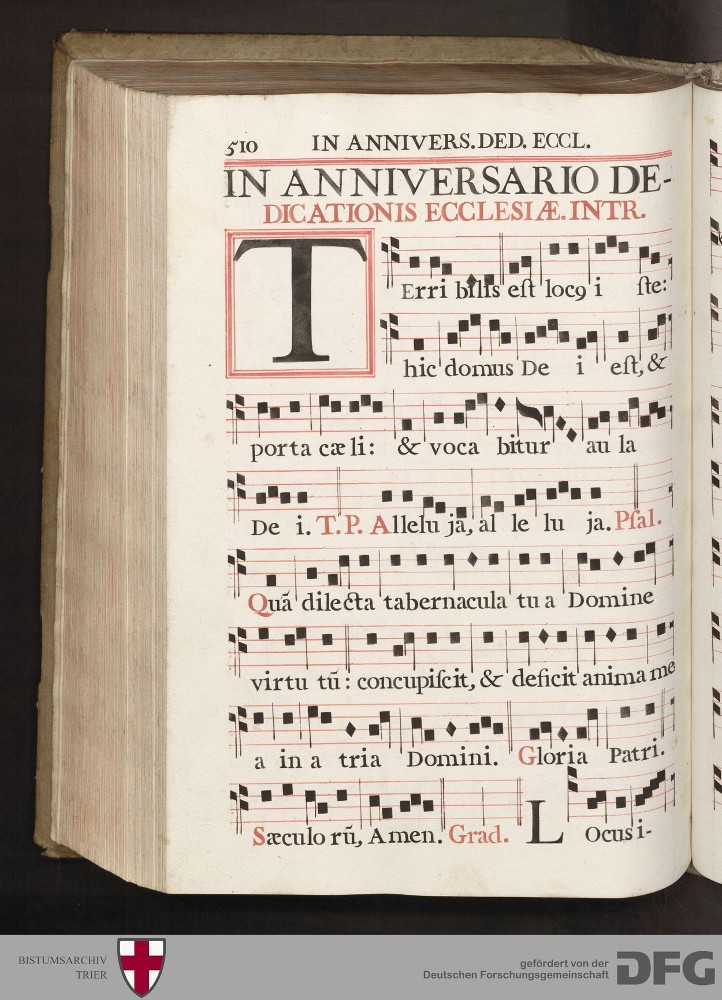 510 IN ANNIVERS. DED. ECCL.
IN ANNIVERSARIO DE-
DICATIONIS ECCLESIÆ. INTR.
TErri bilis eſt locꝯ i ſte:
hic domus De i eſt, &
porta cæ li: & voca bitur au la
De i. T.P. Allelu ja, al le lu ja. Pſal.
Quā dilecta tabernacula tu a Domine
virtu tū: concupiſcit, & deficit anima me
a in a tria Domini. Gloria Patri.
Sæculo rū, Amen. Grad. LOcus i-
BISTUMSARCHIV
TRIER
gefördert von der
Deutschen Forschungsgemeinschaft
DFG